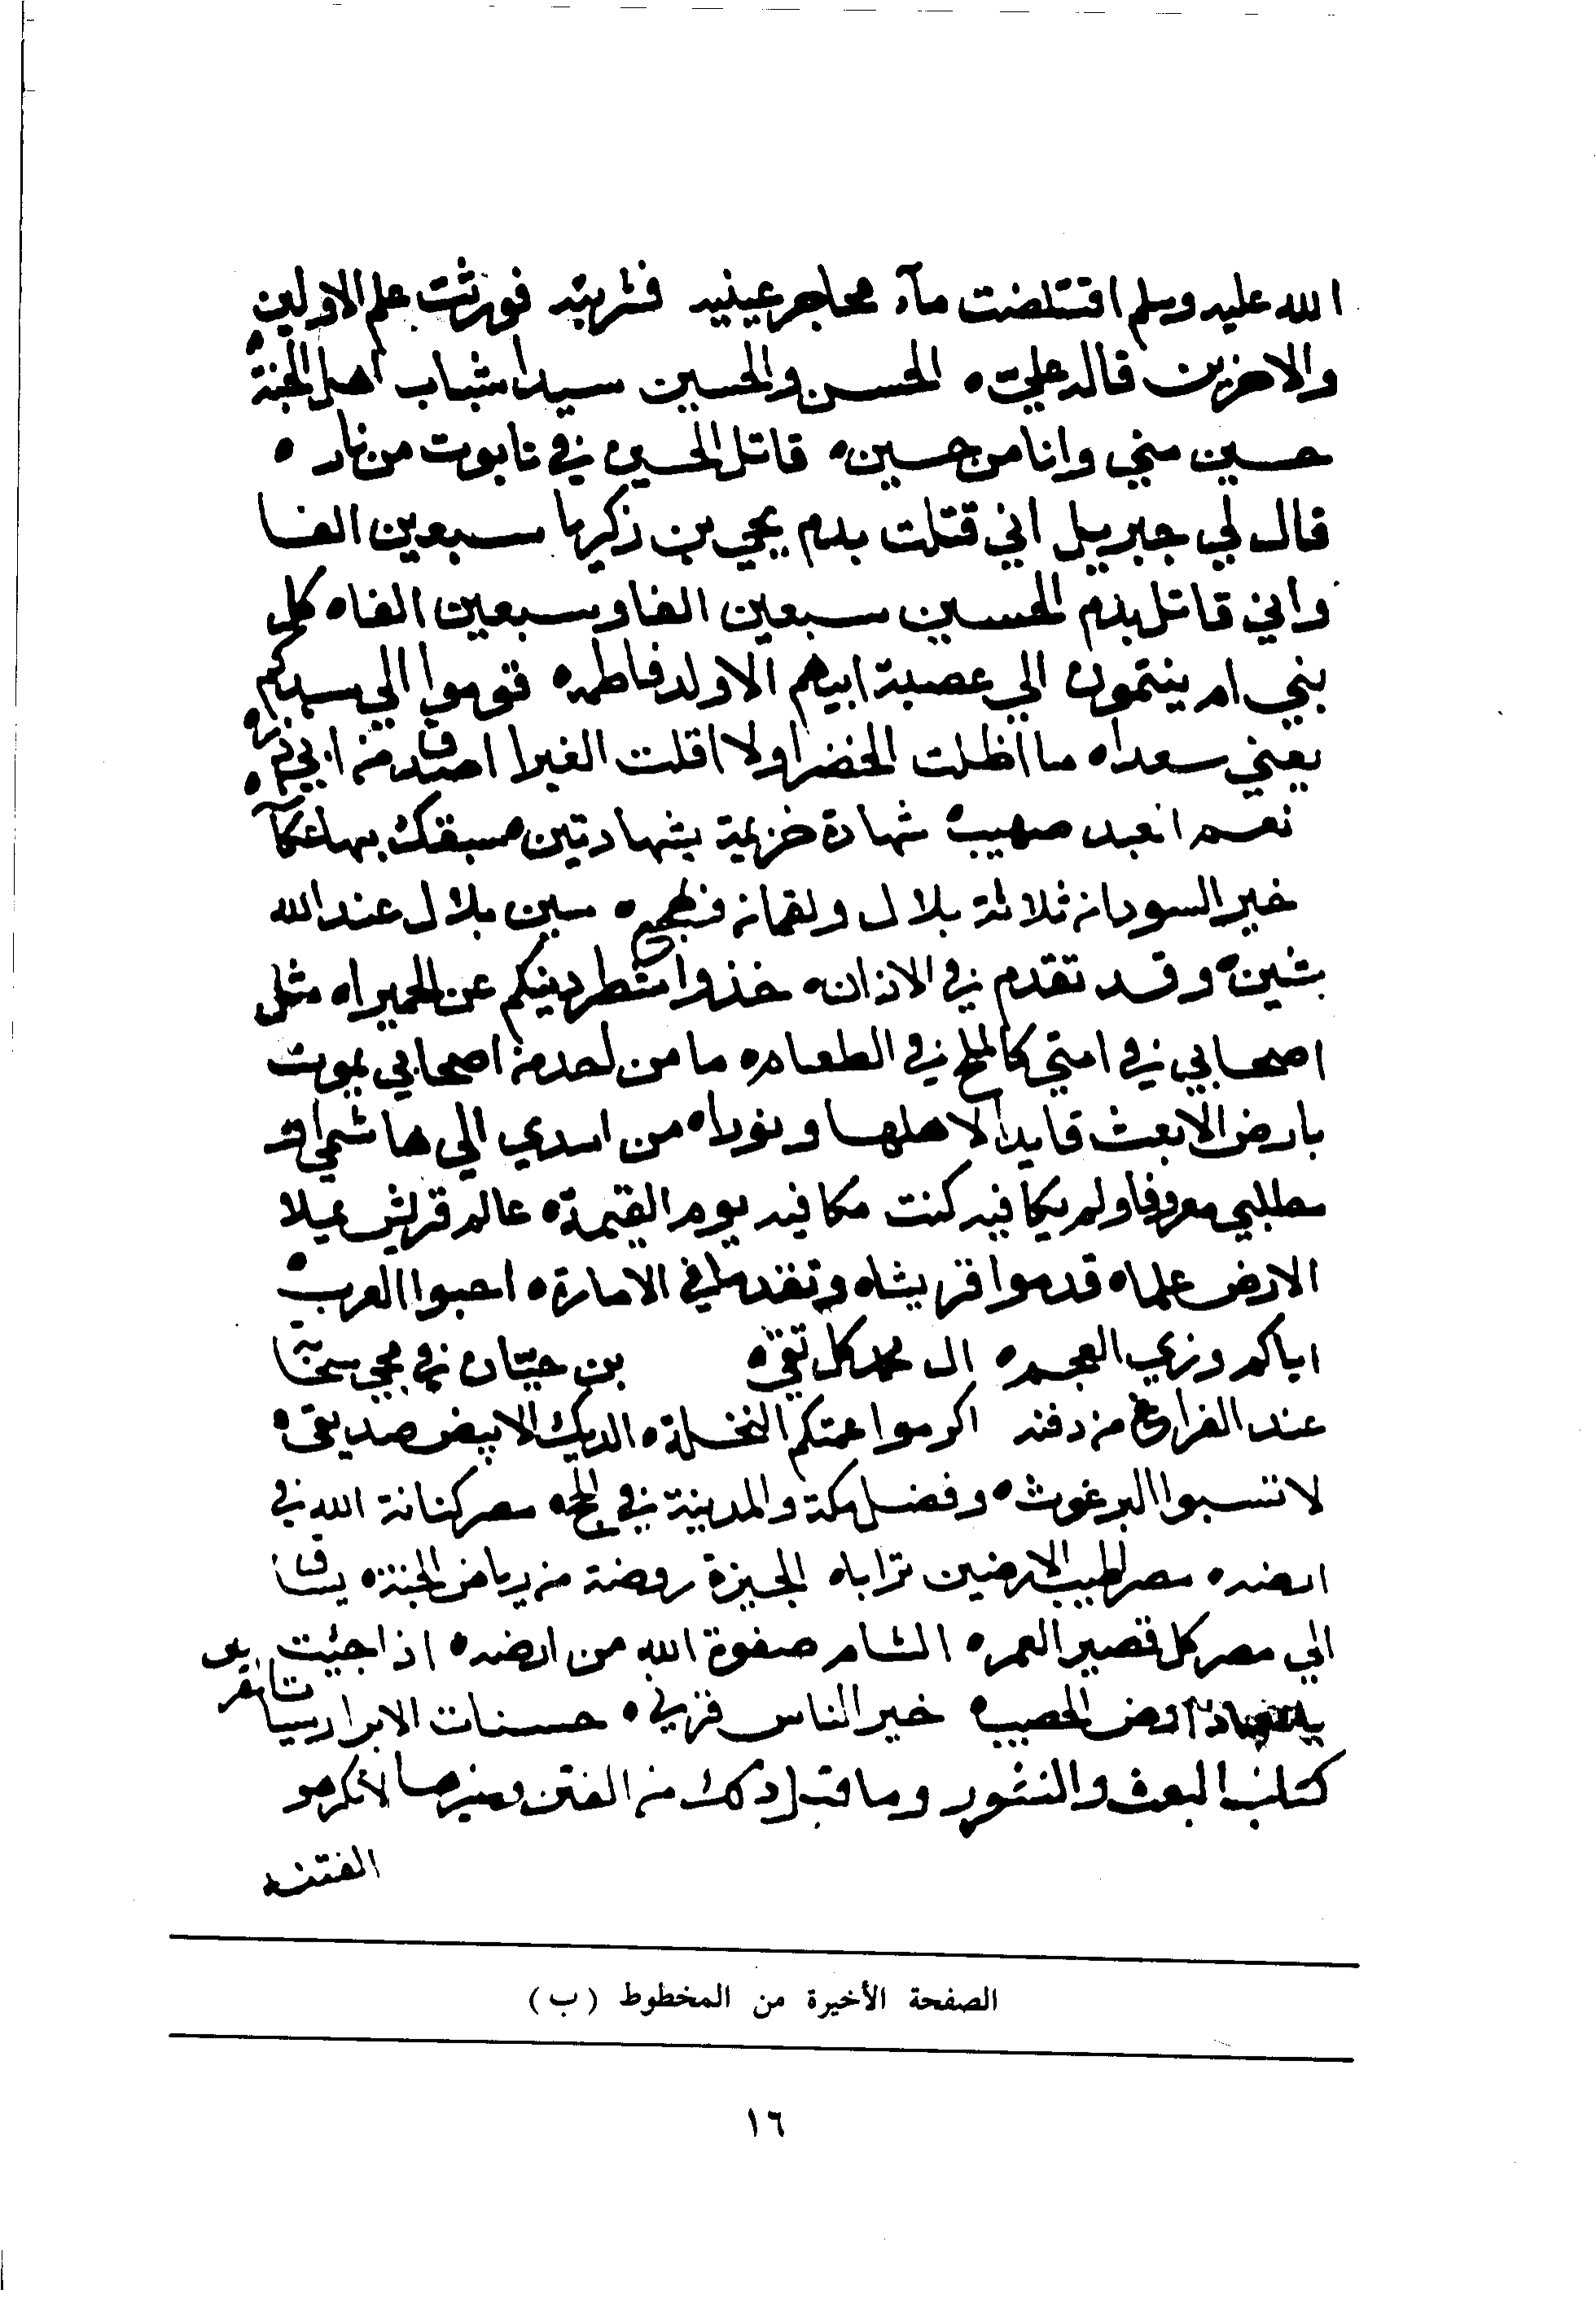 الله عليه وسلم اقتلصت مآء محاجر عينيه فشربته فورثت علم الاولين
والاخرين قاله علي ه الحسن والحسين سيدا شباب اهل الجنة ه
حسين مني وانا من حسين ه قاتل الحسين في تابوت من نار ه
قال لي جبريل اني قتلت بدم يحي بن زكريا سبعين الفا
واني قاتل بدم الحسين سبعين الفا وسبعين الفا ه كل
بني ام ينتمون الي عصبة ابيهم الا ولد فاطمه ه قوموا الي سيدكم
يعني سعدا ه ما اظلت الخضرا ولا اقلت الغبرا اصدق من ابي ذر ه
نعم العبد صهيب ه شهادة خزيمة بشهادتين ه سبقك بها عكآ
خير السودان ثلاثة بلال ولقمان ومهجع ه سين بلال عند الله
شين ه وقد تقدم في الاذان ه خذوا شطر دينكم عن الحميرا ه مثل
اصحابي في امتي كالملح في الطعام ه ما من احد من اصحابي يموت
بارض الا بعث قايدا لاهلها ونورا ه من اسدي الي هاشمي او
مطلبي معروفا ولم يكافيه كنت مكافيه يوم القيمة ه عالم قريش يملا
الارض علما ه قدموا قريشا ه وتقدم في الامارة ه احبوا العرب ه
اياكم وزي العجم ه ال محمد كل تقي ه بن حيتان في مجي
عند الفراغ من دفنه اكرموا عمتكم النخلة ه الديك الابيض صديقي ه
لا تسبوا البرغوث ه وفضل مكة والمدينة في الحج ه مصر كنانة الله في
ارضه ه مصر اطيب الارضين ترابا ه الجيزة روضة من رياض الجنة ه يساق
الي مصر كل قصير العمر ه الشام صفوة الله من ارضه ه اذا جئيت
ارض الحصيب ه خير الناس قرني ه حسنات الابرار سيات المقربين
كتاب البعث والنشور وما قبل ذلك من الفتن وغيرها لا تكرهو
الفتنه
الصفحة الأخيرة من المخطوط (ب)
١٦